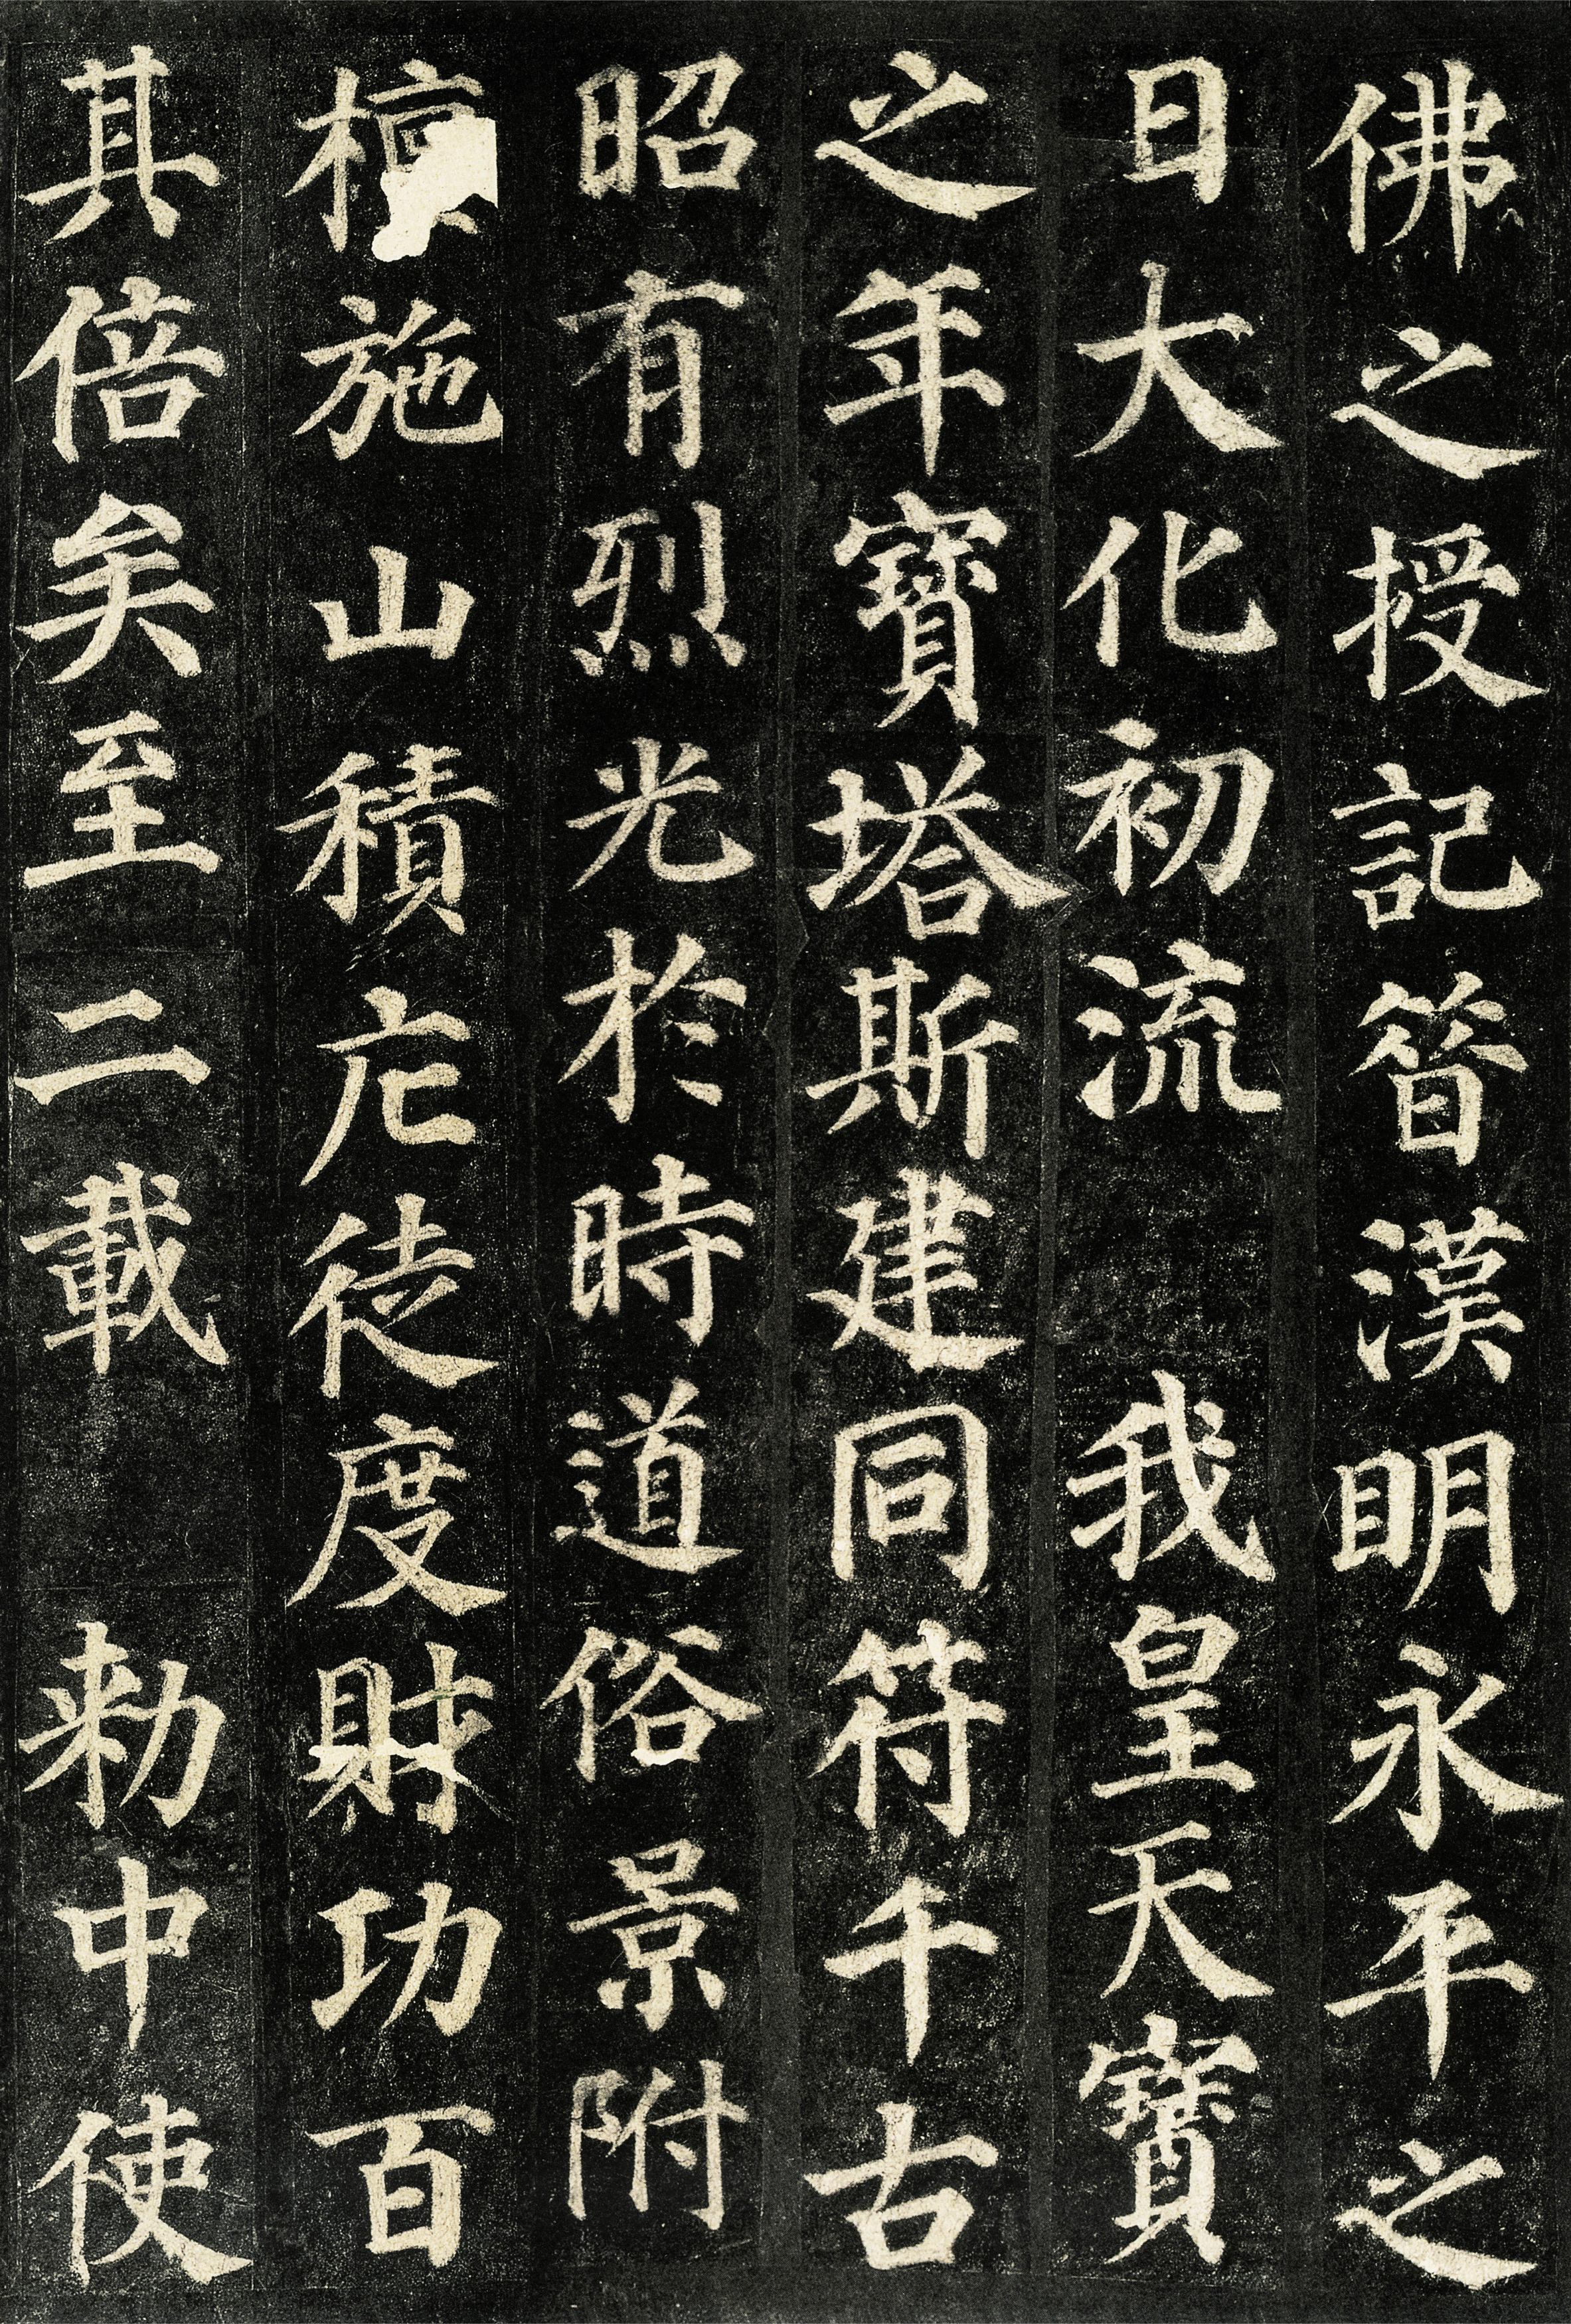 佛之授記昔漢明永平之
日大化初流我皇天寶
之年寶塔斯建同符千古
昭有烈光於時道俗景附
檀施山積庀徒度財功百
其倍矣至二載勅中使